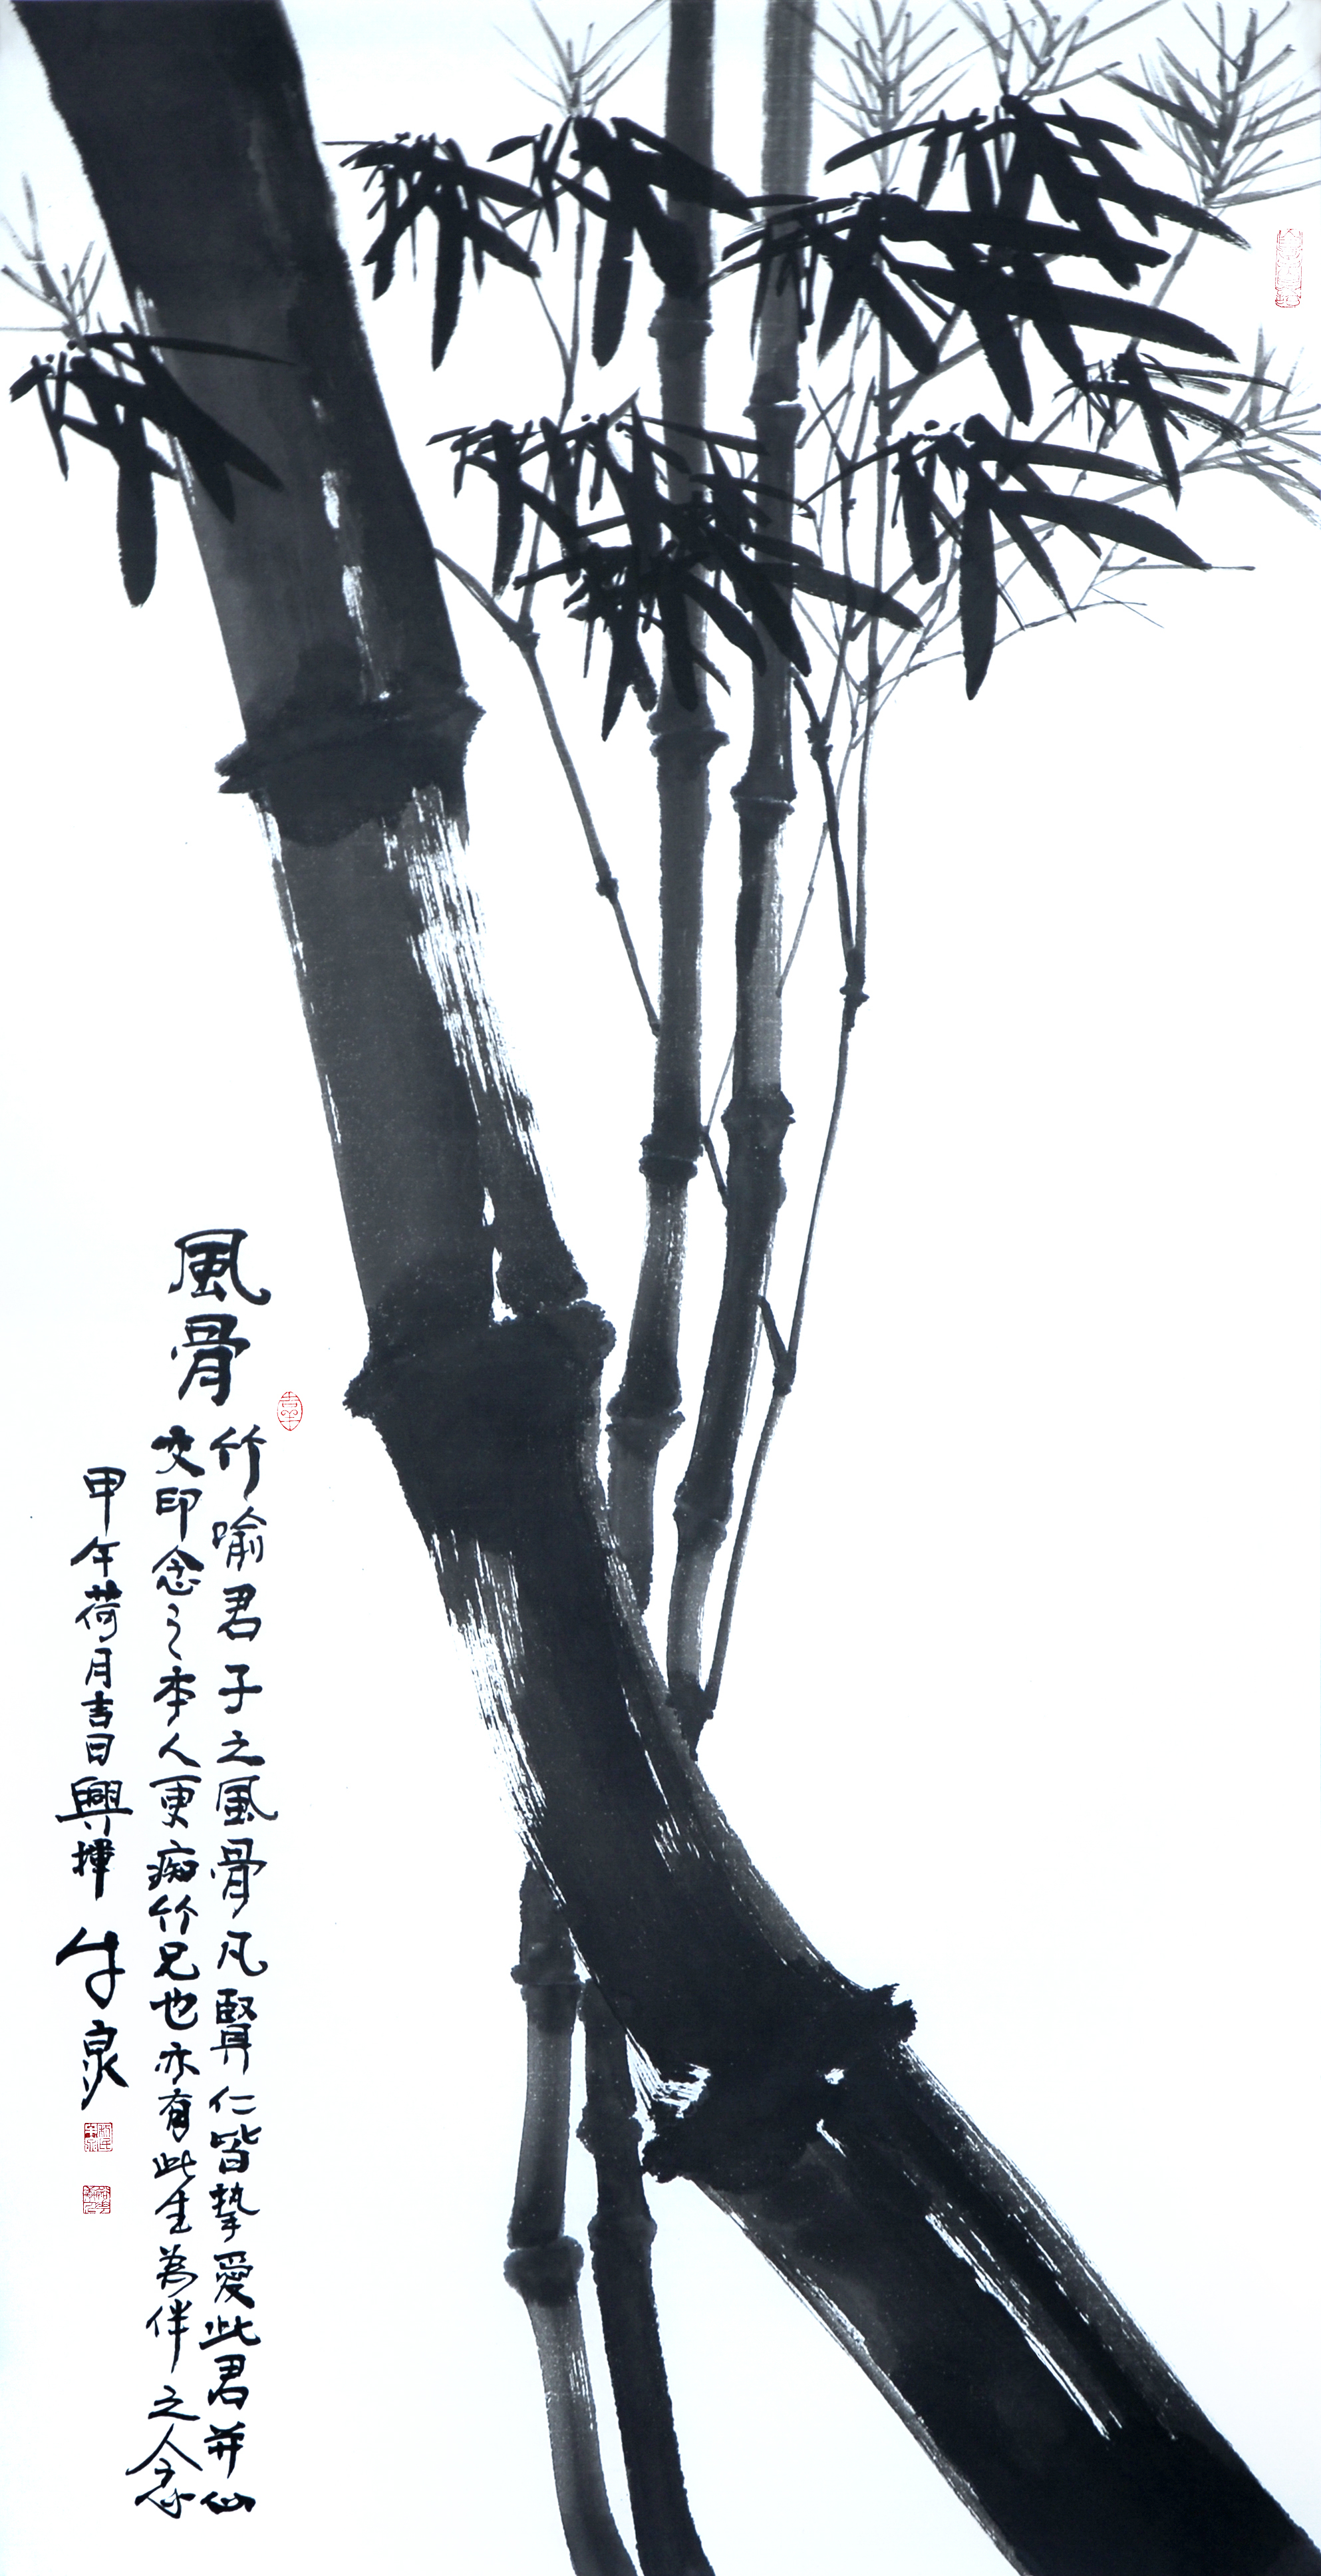 風骨
竹喻君子之風骨凡賢仁皆摯愛此君并仙
交印念之本人更痴竹兄也亦有此生為伴之念
甲午荷月吉日興揮牛泉